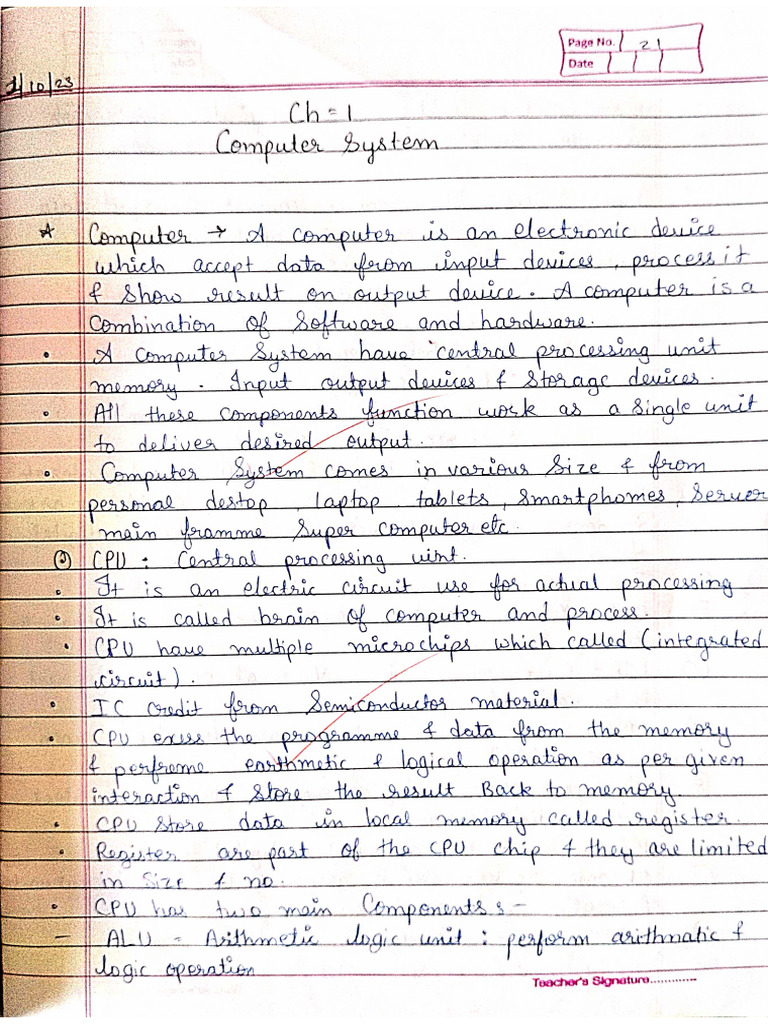 Page No. 21
Date
1/10/23
Ch = 1
Computer System
* Computer → A computer is an electronic device
which accept data from input devices, process it
& Show result on output device. A computer is a
Combination of Software and hardware.
• A Computer System have central processing unit
memory. Input output devices & Storage devices.
• All these components function work as a Single unit
to deliver desired output.
• Computer System comes in various Size & from
personal destop, laptop tablets, Smartphomes, Server
main framme Super computer etc.
CPU : Central processing uint.
• It is an electric circuit use for actual processing
• It is called brain of computer and process.
• CPU have multiple microchips which called (integrated
circuit).
• IC Credit from Semiconductor material.
• CPU exess the programme & data from the memory
& perfreme earthmetic & logical operation as per given
interaction & Store the result Back to memory.
• CPU Store data in local memory called register.
• Register are part of the CPU chip & they are limited
in Size & no.
• CPU has two main Components :-
— ALU = Arithmetic logic unit : perform arithmatic &
logic operation
Teacher's Signature.............